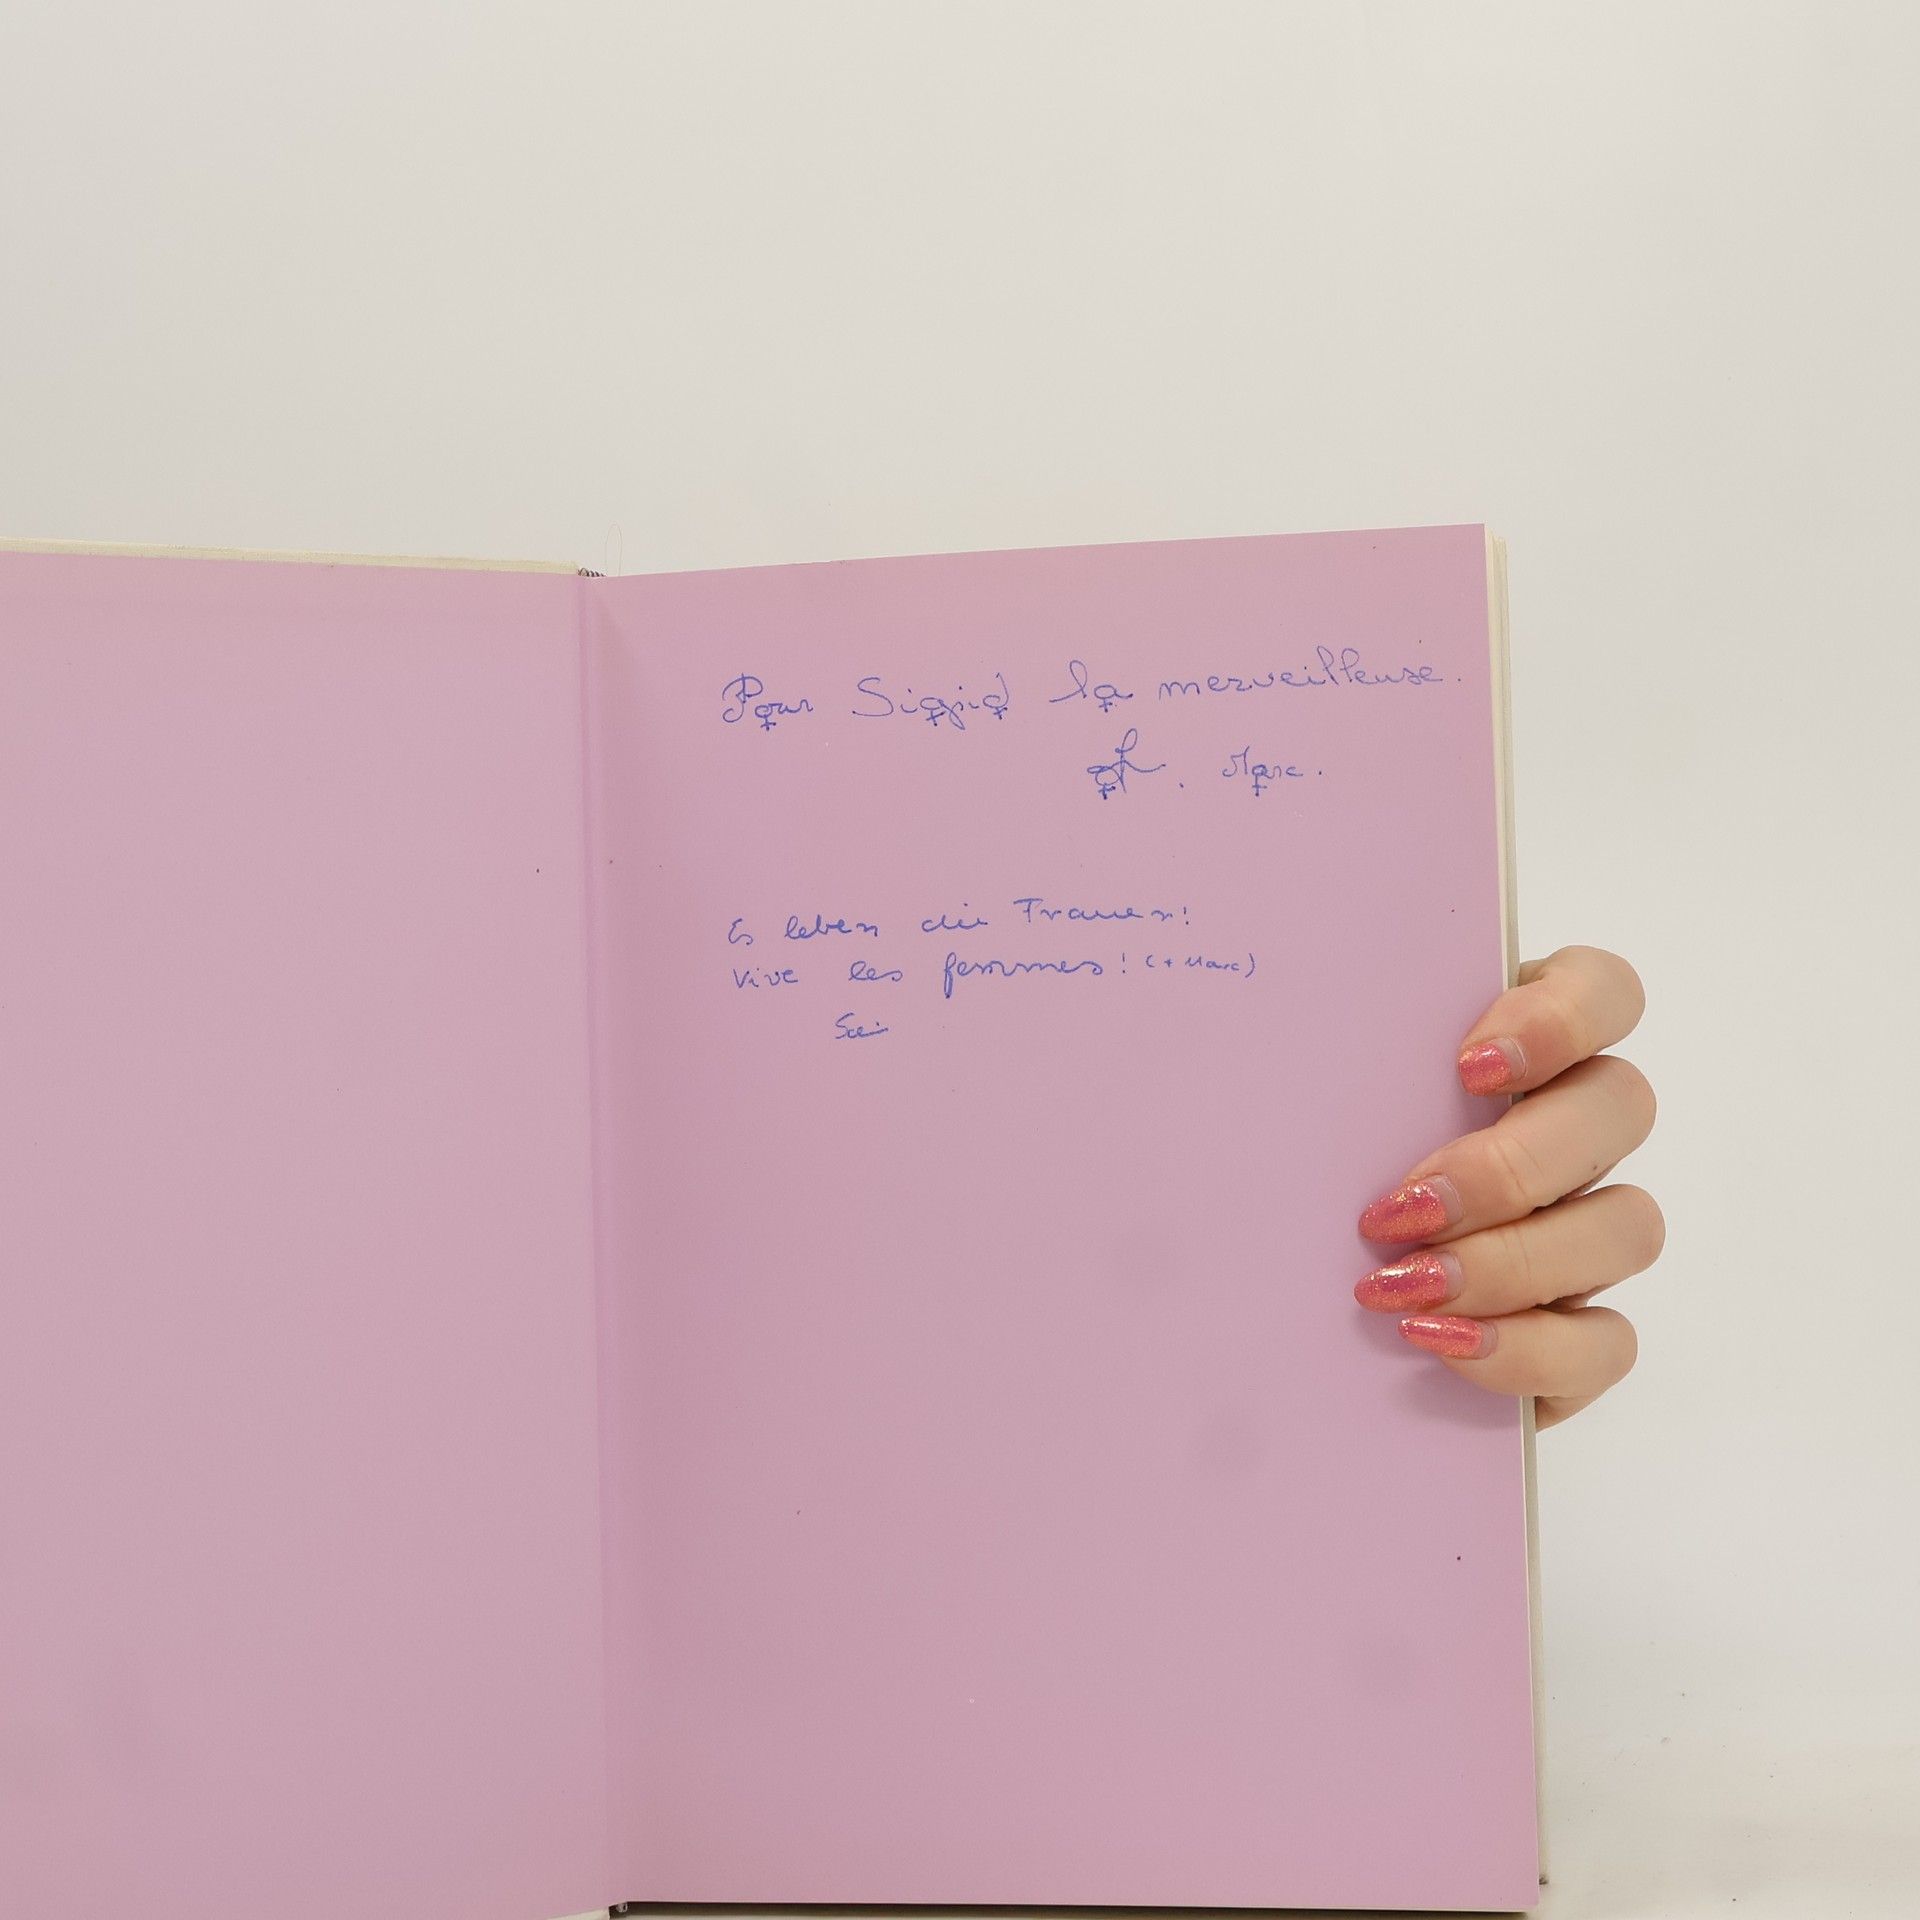 Pour Sigrid la merveilleuse.
Marc.
Es leben die Frauen!
Vive les femmes! (+ Marc)